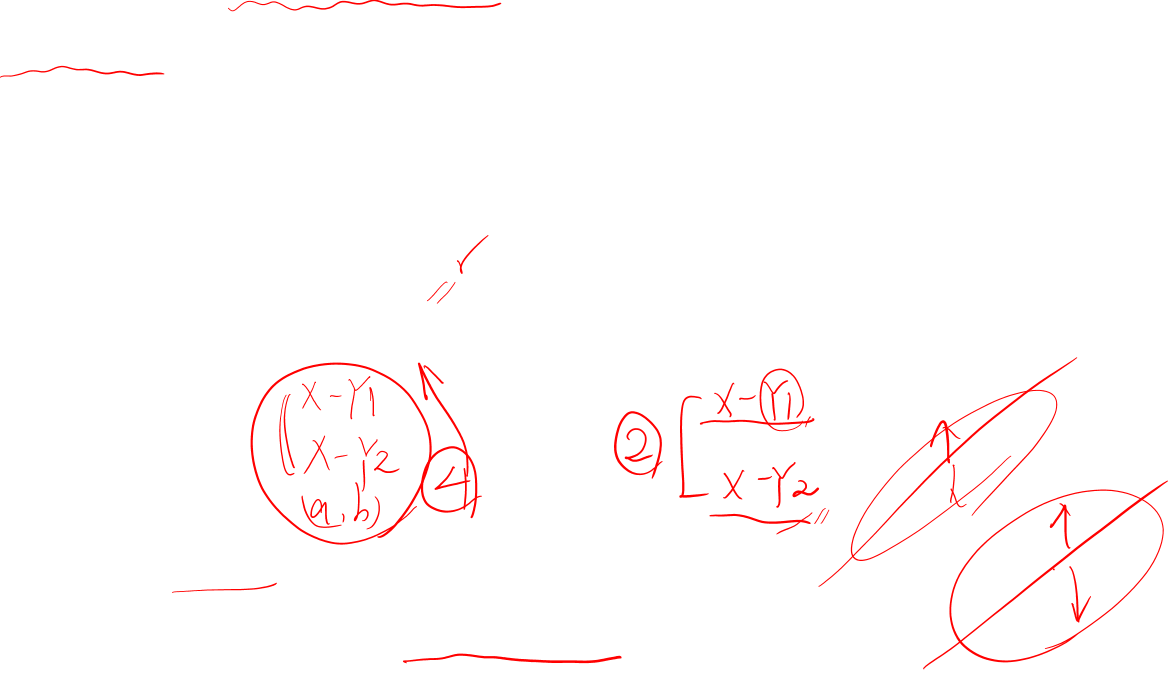 X-Y1
X-Y2
(a, b)
4
2
X-Y1
X-Y2